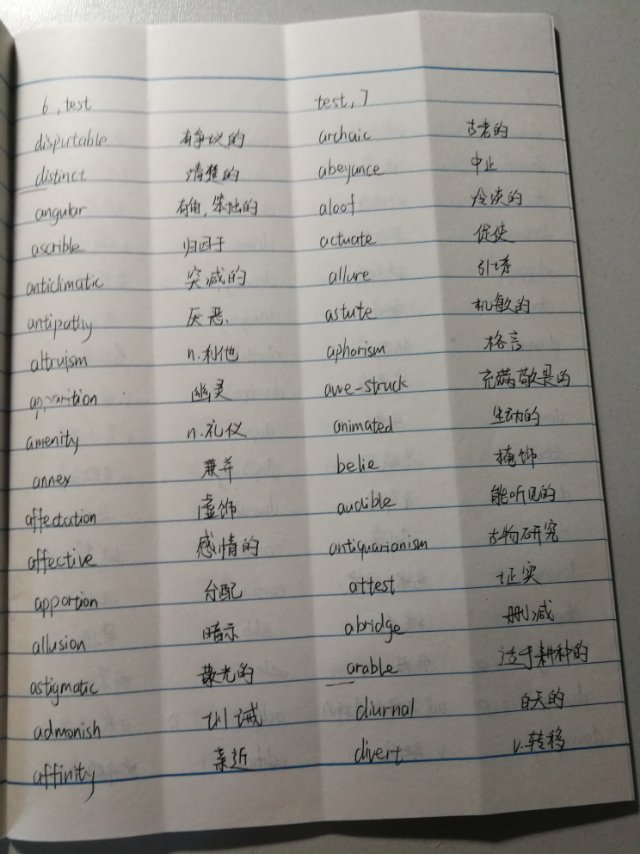 6, test test, 7
dispurtable 有争议的 archaic 古老的
distinct 清楚的 abeyance 中止
angular 有角,笨拙的 aloof 冷淡的
ascrible 归因于 actuate 促使
anticlimatic 突减的 allure 引诱
antipathy 厌恶 astute 机敏的
altruism n.利他 aphorism 格言
apparition 幽灵 awe-struck 充满敬畏的
amenity n.礼仪 animated 生动的
annex 兼并 belie 掩饰
affectation 虚饰 audible 能听见的
affective 感情的 antiquarianism 古物研究
apportion 分配 attest 证实
allusion 暗示 abridge 删减
astigmatic 散光的 arable 适于耕种的
admonish 训诫 diurnal 白天的
affinity 亲近 divert v.转移